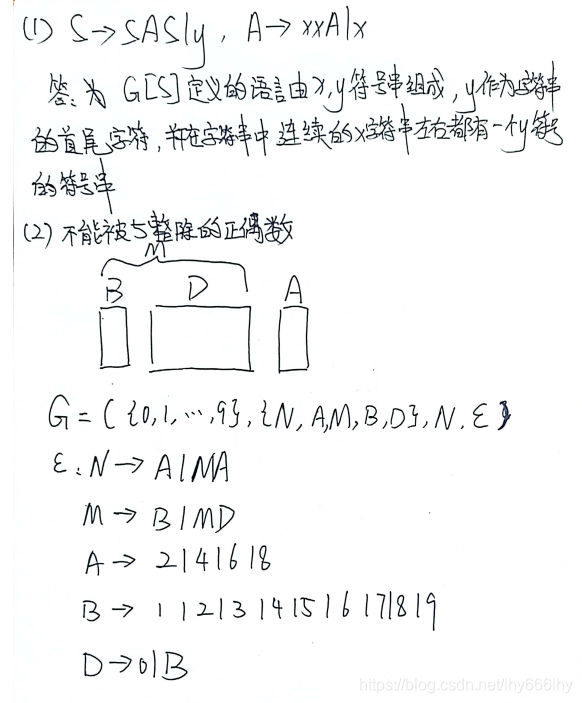 (1) S→SAS|y, A→xxA|x
答:为 G[S]定义的语言由x,y符号串组成,y作为字符串
的首尾字符,并在字符串中连续的x字符串左右都有一个y符号
的符号串
(2) 不能被5整除的正偶数
M
B D A
G=({0,1,…,9},{N,A,M,B,D},N,ε)
ε:N→A|MA
M→B|MD
A→2|4|6|8
B→1|2|3|4|5|6|7|8|9
D→0|B
https://blog.csdn.net/lhy666lhy